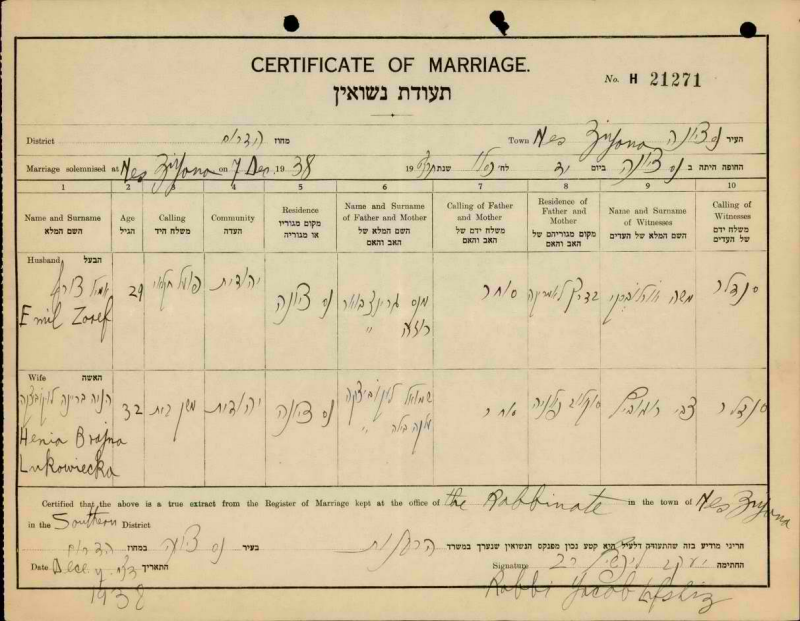 CERTIFICATE OF MARRIAGE.
No. H 21271
תעודת נשואין
District מחוז הדרום Town Nes Ziyona נס ציונה העיר
Marriage solemnised at Nes Ziyona on 7 Dec, 1938 19 שנת לח' כסלו יד ביום נס ציונה החופה היתה ב
1 2 3 4 5 6 7 8 9 10
Name and Surname השם המלא
Age הגיל
Calling משלח היד
Community העדה
Residence מקום מגוריו או מגוריה
Name and Surname of Father and Mother השם המלא של האב והאם
Calling of Father and Mother משלח ידם של האב והאם
Residence of Father and Mother מקום מגוריהם של האב והאם
Name and Surname of Witnesses השם המלא של העדים
Calling of Witnesses משלח ידם של העדים
Husband הבעל
אמיל
Emil Zosef
29
פועל חקלאי
יהודית
נס ציונה
סוחר
משה
סנדלר
Wife האשה
הניה בריינה לוקוביצקה
Henia Brajna
Lukowiecka
32
משק בית
יהודית
נס ציונה
שמואל לוקוביצקה
סוחר
צבי
סנדלר
Certified that the above is a true extract from the Register of Marriage kept at the office of the Rabbinate in the town of Nes Ziyona
in the Southern District
הריני מודיע בזה שהתעודה דלעיל היא קטע נכון מפנקס הנשואין שנערך במשרד הרבנות בעיר נס ציונה במחוז הדרום
Date Dec 7 התאריך Signature יעקב ליפשיץ רב החתימה
1938 Rabbi Yacob Lifshiz